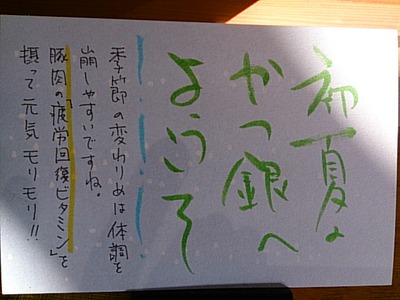 初夏の
かつ銀へ
ようこそ
季節の変わりめは体調を
崩しやすいですね。
豚肉の「疲労回復ビタミン」を
摂って元気モリモリ!!